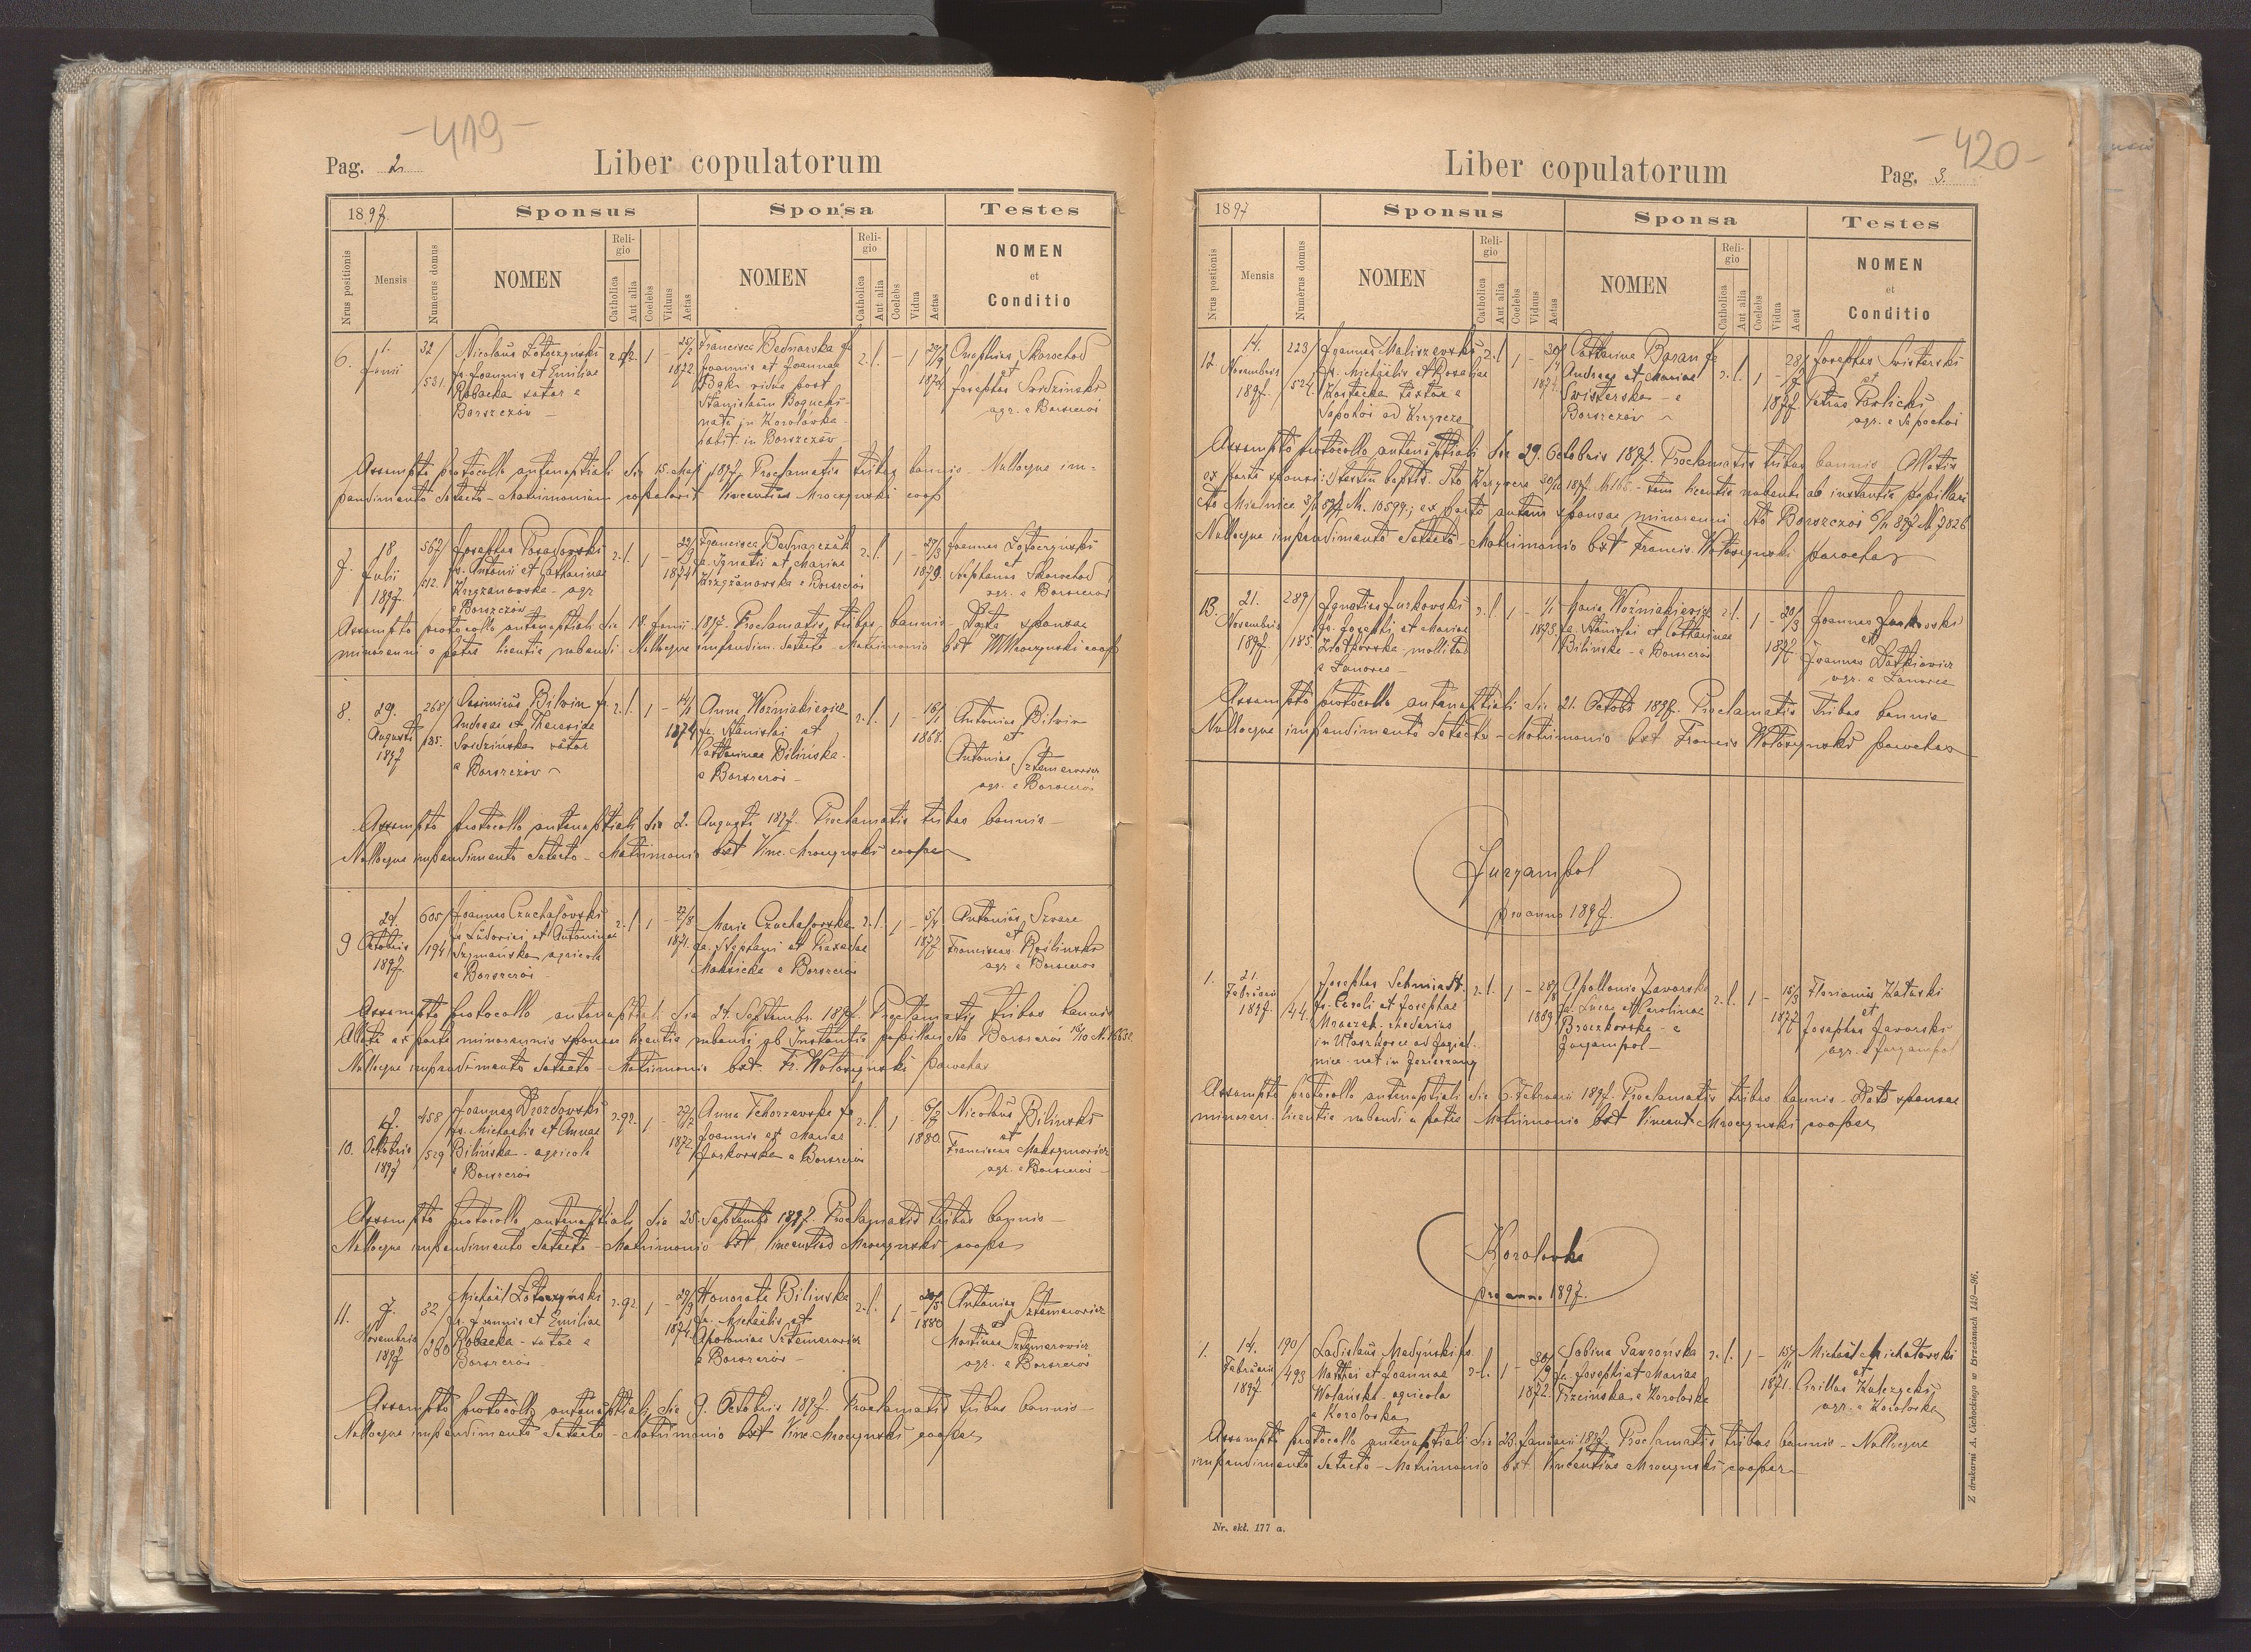 -419-
Pag. 2
Liber copulatorum
1897
Sponsus
Sponsa
Testes
Nrus positionis
Mensis
Numerus domus
NOMEN
Religio
Catholica
Aut alia
Coelebs
Viduus
Aetas
NOMEN
Religio
Catholica
Aut alia
Coelebs
Vidua
Aetas
NOMEN
et
Conditio
6.
1.
Junii
32/
531.
Nicolaus
fs. Joannis et Emiliae
Robacka sator e
Borszczów
1
25/2
1872.
Francisca Bednarska fa
Joannis et Joannae
Bąk vidua post
Stanislaum
nata in Korolówka
habit. in Borszczów
r.l.
1
29/9
1872
Onophrius Skorochod
et
Josephus Svidzinski
agr. e Borszczów
Assumpto protocollo antenuptiali die 15. Maji 1897. Proclamatis tribus bannis - Nulloque im-
pendimento detecto - Matrimonium copulavit Vincentius Mroczynski coop
7.
18
Julii
1897.
567/
512.
Josephus
fs. Antonii et Catharinae
Krzyżanowska - agr
e Borszczów
r.l.
1
1874
Francisca Bednarczuk
fa. Ignatii et Mariae
Krzyżanowska e Borszczów
r.l.
1
27/3
1879.
Joannes
et
Stephanus Skorochod
agr. e Borszczów
Assumpto protocollo antenuptiali die 18. Junii 1897. Proclamatis tribus bannis - Data sponsae
minorenni a patre licentia nubendi - Nulloque impendim. detecto - Matrimonio bxt V Mroczynski coop
8.
29.
Augusti
1897
268/
135.
Casimirus Bilwin fs.
Andreae et Theresiae
Svidzińska sator
e Borszczów
r.l.
1
14/1
1874
Anna Woźniakiewicz
fa. Stanislai et
Catharinae Bilińska
e Borszczów
r.l.
1
16/1
1868.
Antonius Bilwin
et
Antonius Sztemerowicz
agr. e Borszczów
Assumpto protocollo antenuptiali die 2. Augusti 1897. Proclamatis tribus bannis -
Nulloque impendimento detecto - Matrimonio bxt Vinc. Mroczynski cooper
9
Octobris
1897.
605/
194
Joannes Czuchasowski
fs Ludovici et Antoninae
Szymańska agricola
e Borszczów
r.l.
1
27/8
1871.
Maria Czuchasowska
fa. Stephani et Praxedae
e Borszczów
r.l.
1
5/4
1877
Antonius Szware
et
Franciscus Rośliński
agr e Borszczów
Assumpto protocollo antenuptiali die 24. Septembr. 1897. Proclamatis tribus bannis
Allata ex parte minorennis sponsae licentia nubendi ab Instantia pupillari dto Borszczów
Nulloque impendimento detecto - Matrimonio bxt. Fr. Wołoszynski parochus
10.
Octobris
1897
458/
529
Joannes Drozdowski
fs. Michaelis et Annae
Bilińska - agricola
e Borszczów
1
1872
Anna Tchorzewska fa
Joannis et Mariae
Jurkowska e Borszczów
r.l.
1
1880.
Nicolaus Bilinski
et
Franciscus Maksymowicz
agr. e Borszczów
Assumpto protocollo antenuptiali die 25. Septembr 1897. Proclamatis tribus bannis -
Nulloque impendimento detecto - Matrimonio bxt Vincentius Mroczynski cooper
11.
7.
Novembris
1897
32/
Michaël
fs. Joannis et Emiliae
Robacka - sator e
Borszczów
1
29/9
1874
Honorata Bilinska
fa. Michaëlis et
Apoloniae Sztemerowicz
e Borszczów -
r.l.
1
1880
Antonius Sztemerowicz
et
Martinus Sztemerowicz
agr. e Borszczów
Assumpto protocollo antenuptiali die 9. Octobris 1897. Proclamatis tribus bannis -
Nulloque impendimento detecto - Matrimonio bxt Vinc Mroczynski cooper
-420-
Liber copulatorum
Pag. 3.
1897
Sponsus
Sponsa
Testes
Nrus postionis
Mensis
Numerus domus
NOMEN
Religio
Catholica
Aut alia
Coelebs
Viduus
Aetas
NOMEN
Religio
Catholica
Aut alia
Coelebs
Vidua
Aeat
NOMEN
et
Conditio
12.
14.
Novembris
1897.
223/
524.
Joannes Maliszewski
fs. Michaëlis et Rosaliae
Kostecka textor e
Sapohów ad Krzywcze
r.l
1
1877.
Catharina Baran fa
Andreae et Mariae
Svisterska - e
Borszczów
r.l.
1
1877.
Josephus Svisterski
et
Petrus Pavlicki
agr. e Sapohów
Assumpto protocollo antenuptiali die 29. Octobris 1897. Proclamatis tribus bannis - Allatis
ex parte sponsi: testim baptis. dto Krzywcze - tum licentia nubendi ab instantia pupillari
dto Mielnica Nr. 10599; ex parte autem sponsae minorenni dto Borszczów N 7026
Nulloque impendimento detecto - Matrimonio bxt Francis. Wołoszynski parochus
13.
21.
Novembris
1897.
289/
185.
Ignatius Jurkowski
fs. Josephi et Mariae
Ziółkowska mollitor
e Łanowce -
r.l
1
1/1
1873.
Maria Woźniakiewicz
fa. Stanislai et Catharinae
Bilińska - e Borszczów
r.l.
1
20/3
1877.
Joannes Jurkowski
et
Joannes
agr. e Łanowce
Assumpto protocollo antenuptiali die 21. Octobr 1897. Proclamatis tribus bannis
Nulloque impendimento detecto - Matrimonio bxt Francis Wołoszynski parochus
Jurjampol
pro anno 1897.
1.
21.
Februarii
1897.
44
Josephus Schmidt
fs. Caroli et Josephae
Mraczek
in Ułaszkowce ad Jagiel-
nica nat in Jezierzany
r.l.
1
28/8
1869
Apollonia Jaworska
fa. Lucae et Carolinae
Broczkowska - e
Jurjampol -
r.l.
1
15/3
1877
Florianus
et
Josephus Jaworski
agr. e Jurjampol
Assumpto protocollo antenuptiali die 6. Februarii 1897. Proclamatis tribus bannis - Data sponsae
minoren. licentia nubendi a patre Matrimonio bxt Vincent Mroczynski cooper
Korolówka
pro anno 1897.
1.
14.
Februarii
1897
190/
493
Ladislaus Madyński fs.
Matthei et Joannae
Wolańska - agricola
e Korolówka
r.l.
1
30/9
1872.
Sabina Gawrońska
fa. Josephi et Mariae
Trzcińska e Korolówka
r.l.
1
15/11
1871.
Michaël Michałowski
et
Cirillus
agr. e Korolówka
Assumpto protocollo antenuptiali die 23. Januarii 1897. Proclamatis tribus bannis - Nulloque
impendimento detecto - Matrimonio bxt Vincentius Mroczynski cooper
Nr. skł. 177 a.
Z drukarni A. Cichockiego w Brzeżanach 149—96.